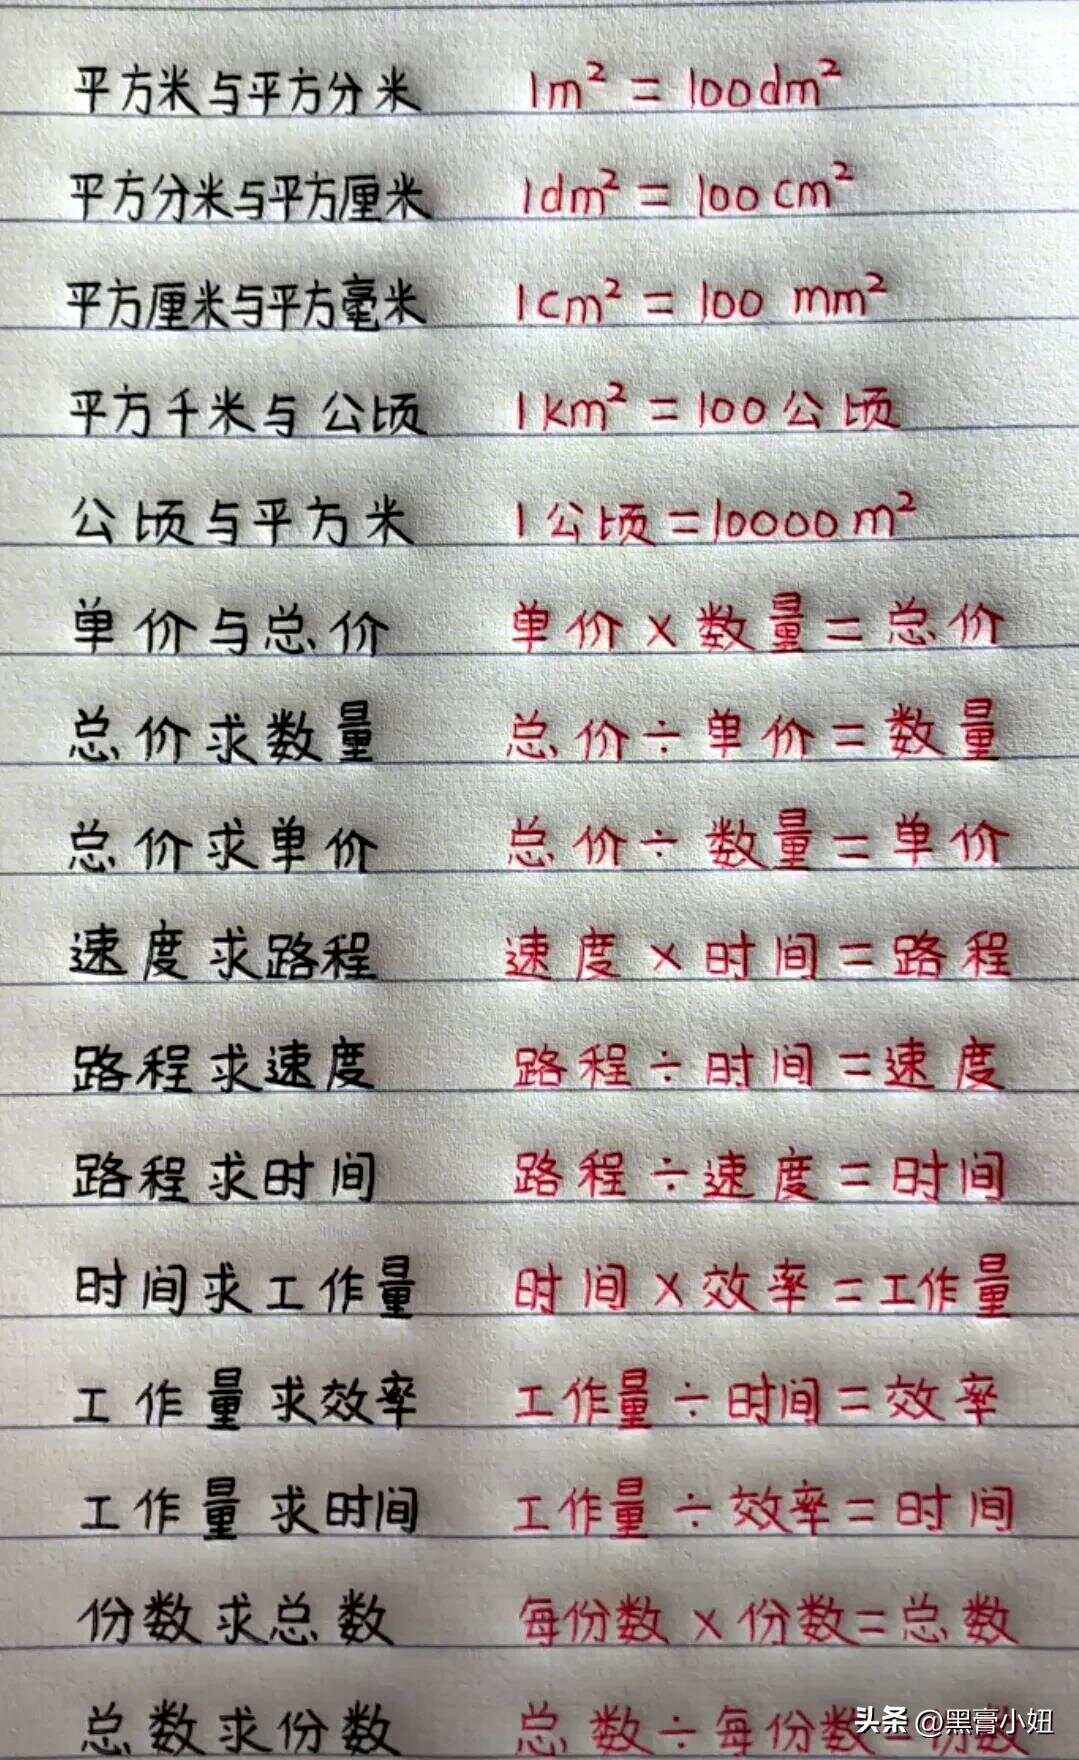 平方米与平方分米 1m²=100dm²
平方分米与平方厘米 1dm²=100cm²
平方厘米与平方毫米 1cm²=100 mm²
平方千米与公顷 1km²=100公顷
公顷与平方米 1公顷=10000m²
单价与总价 单价×数量=总价
总价求数量 总价÷单价=数量
总价求单价 总价÷数量=单价
速度求路程 速度×时间=路程
路程求速度 路程÷时间=速度
路程求时间 路程÷速度=时间
时间求工作量 时间×效率=工作量
工作量求效率 工作量÷时间=效率
工作量求时间 工作量÷效率=时间
份数求总数 每份数×份数=总数
总数求份数 总数÷每份数=份数
头条 @黑膏小妞